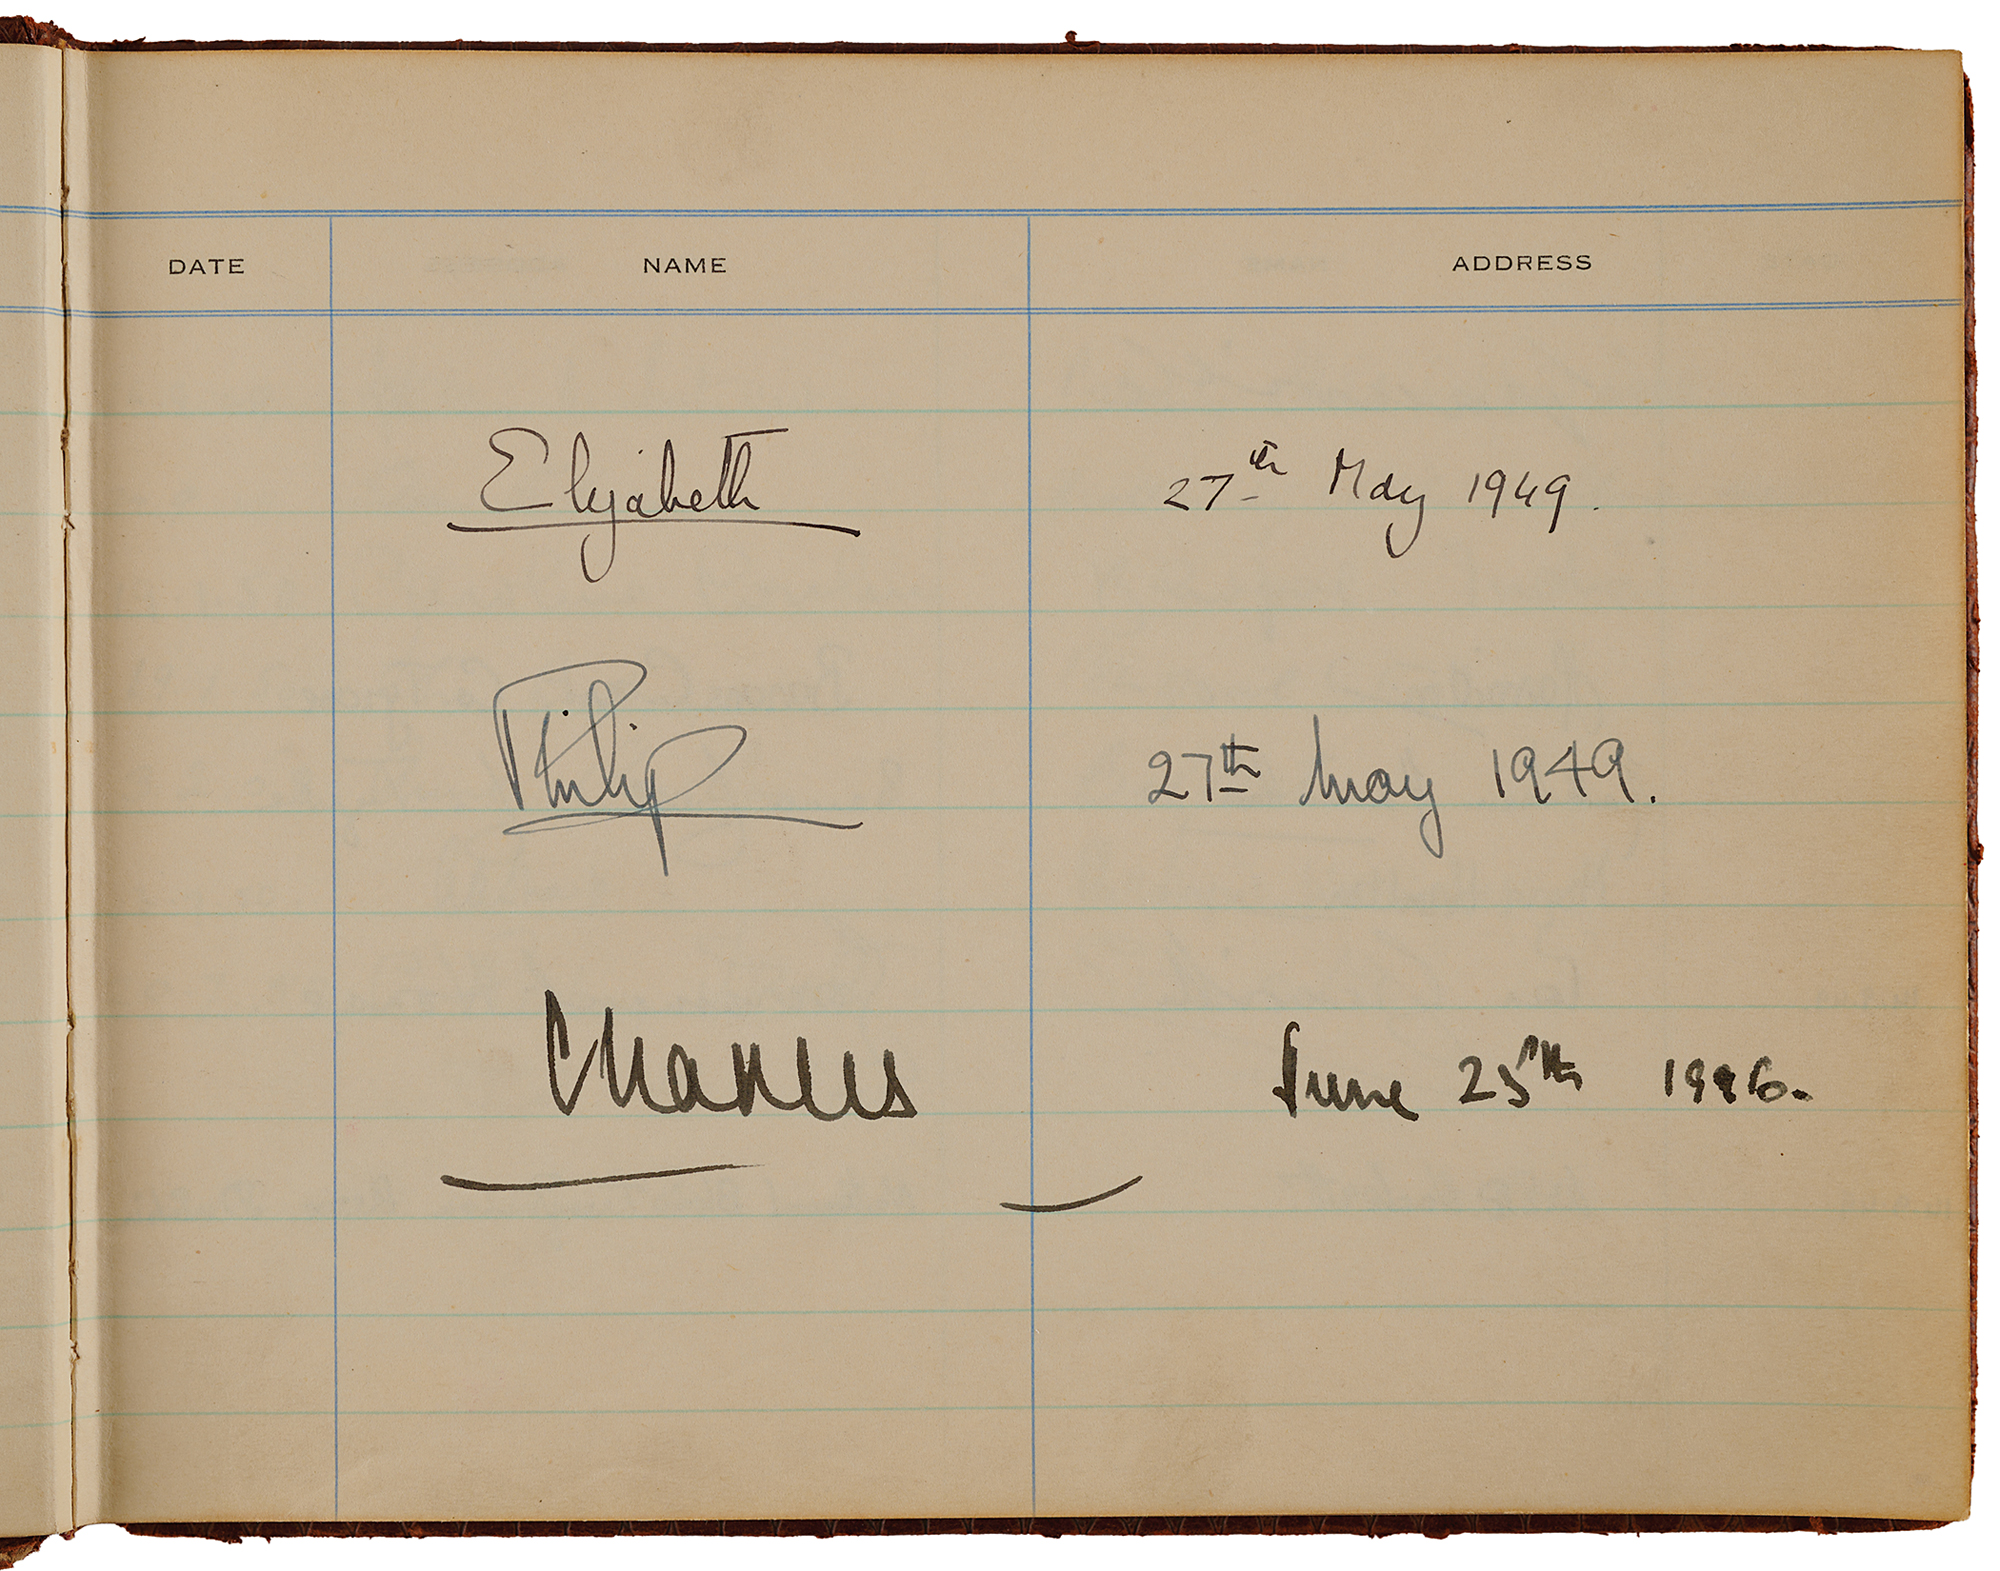 DATE NAME ADDRESS
Elizabeth 27th May 1949.
Philip 27th May 1949.
Charles June 25th